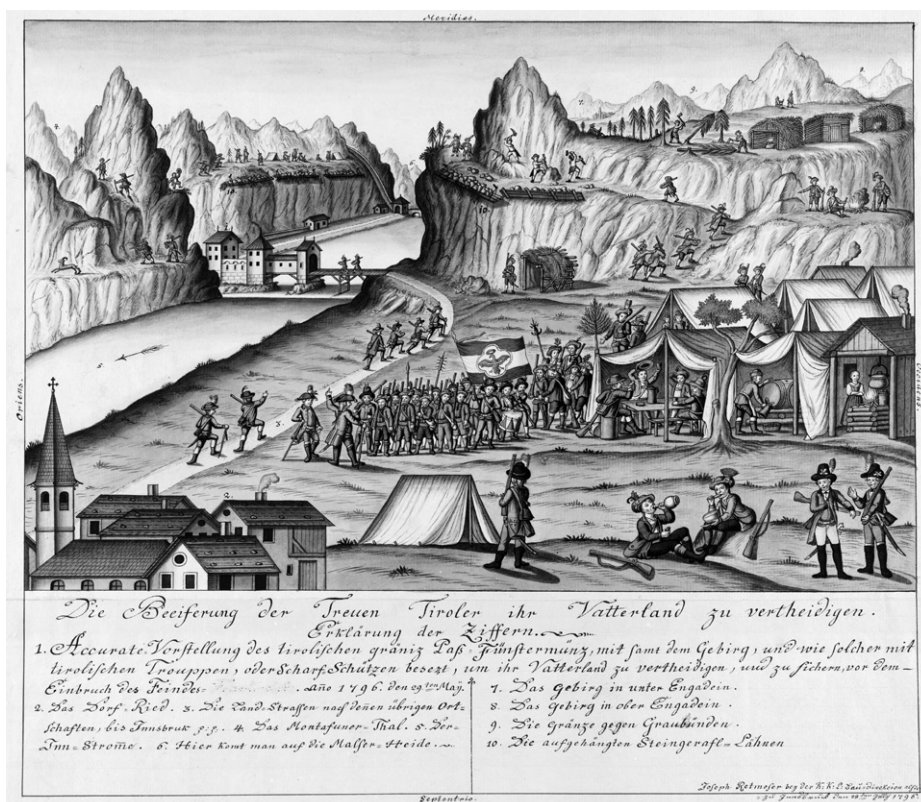 Meridies.
Oriens.
Die Beeiferung der Treuen Tiroler ihr Vatterland zu vertheidigen.
Erklärung der Ziffern.
1. Accurate Vorstellung des tirolischen gräniz Paß Finstermünz, mit samt dem Gebirg, und wie solcher mit
tirolischen Trouppen, oder Scharf Schützen besezt, um ihr Vatterland zu vertheidigen, und zu sichern, vor dem
Einbruch des Feindes. Año 1796. den 29.ten Maÿ.
2. Das Dorf Ried. 3. Die Land-Strassen nach deñen übrigen Ort-
schaften, bis Innsbruk p:p. 4. Das Montafuner-Thal. 5. Der
Inn-Strome. 6. Hier komt man auf die Malser-Heide.
7. Das Gebirg in unter Engadein.
8. Das Gebirg in ober Engadein.
9. Die Gränze gegen Graubünden.
10. Die aufgehängten Steingerafl-Lähnen
Joseph Retmoser beÿ der K. K. L.
July 1796
Septentrio.